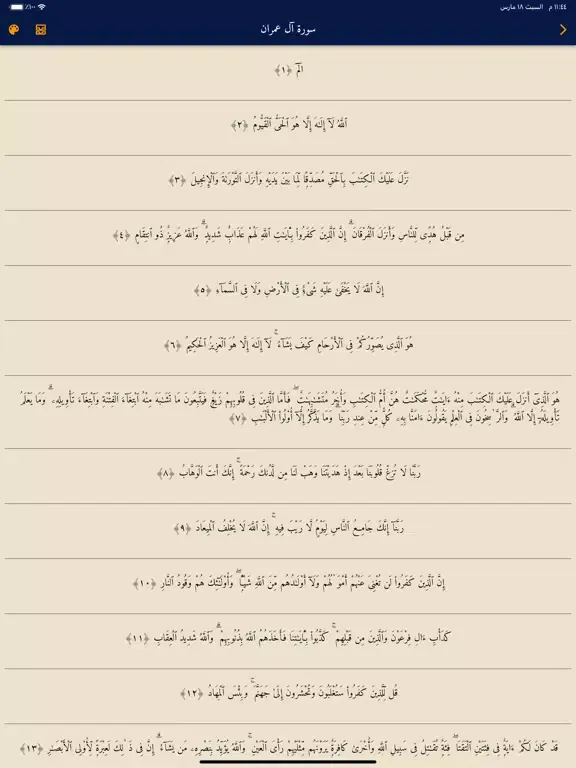 ١١:٤٤ م السبت ١٨ مارس
٪١٠٠
سورة آل عمران
الٓمٓ ﴿١﴾
ٱللَّهُ لَآ إِلَـٰهَ إِلَّا هُوَ ٱلْحَىُّ ٱلْقَيُّومُ ﴿٢﴾
نَزَّلَ عَلَيْكَ ٱلْكِتَـٰبَ بِٱلْحَقِّ مُصَدِّقًا لِّمَا بَيْنَ يَدَيْهِ وَأَنزَلَ ٱلتَّوْرَىٰةَ وَٱلْإِنجِيلَ ﴿٣﴾
مِن قَبْلُ هُدًى لِّلنَّاسِ وَأَنزَلَ ٱلْفُرْقَانَ ۗ إِنَّ ٱلَّذِينَ كَفَرُوا۟ بِـَٔايَـٰتِ ٱللَّهِ لَهُمْ عَذَابٌ شَدِيدٌ ۗ وَٱللَّهُ عَزِيزٌ ذُو ٱنتِقَامٍ ﴿٤﴾
إِنَّ ٱللَّهَ لَا يَخْفَىٰ عَلَيْهِ شَىْءٌ فِى ٱلْأَرْضِ وَلَا فِى ٱلسَّمَآءِ ﴿٥﴾
هُوَ ٱلَّذِى يُصَوِّرُكُمْ فِى ٱلْأَرْحَامِ كَيْفَ يَشَآءُ ۚ لَآ إِلَـٰهَ إِلَّا هُوَ ٱلْعَزِيزُ ٱلْحَكِيمُ ﴿٦﴾
هُوَ ٱلَّذِىٓ أَنزَلَ عَلَيْكَ ٱلْكِتَـٰبَ مِنْهُ ءَايَـٰتٌ مُّحْكَمَـٰتٌ هُنَّ أُمُّ ٱلْكِتَـٰبِ وَأُخَرُ مُتَشَـٰبِهَـٰتٌ ۖ فَأَمَّا ٱلَّذِينَ فِى قُلُوبِهِمْ زَيْغٌ فَيَتَّبِعُونَ مَا تَشَـٰبَهَ مِنْهُ ٱبْتِغَآءَ ٱلْفِتْنَةِ وَٱبْتِغَآءَ تَأْوِيلِهِۦ ۗ وَمَا يَعْلَمُ
تَأْوِيلَهُۥٓ إِلَّا ٱللَّهُ ۗ وَٱلرَّٰسِخُونَ فِى ٱلْعِلْمِ يَقُولُونَ ءَامَنَّا بِهِۦ كُلٌّ مِّنْ عِندِ رَبِّنَا ۗ وَمَا يَذَّكَّرُ إِلَّآ أُو۟لُوا۟ ٱلْأَلْبَـٰبِ ﴿٧﴾
رَبَّنَا لَا تُزِغْ قُلُوبَنَا بَعْدَ إِذْ هَدَيْتَنَا وَهَبْ لَنَا مِن لَّدُنكَ رَحْمَةً ۚ إِنَّكَ أَنتَ ٱلْوَهَّابُ ﴿٨﴾
رَبَّنَآ إِنَّكَ جَامِعُ ٱلنَّاسِ لِيَوْمٍ لَّا رَيْبَ فِيهِ ۚ إِنَّ ٱللَّهَ لَا يُخْلِفُ ٱلْمِيعَادَ ﴿٩﴾
إِنَّ ٱلَّذِينَ كَفَرُوا۟ لَن تُغْنِىَ عَنْهُمْ أَمْوَٰلُهُمْ وَلَآ أَوْلَـٰدُهُم مِّنَ ٱللَّهِ شَيْـًٔا ۖ وَأُو۟لَـٰٓئِكَ هُمْ وَقُودُ ٱلنَّارِ ﴿١٠﴾
كَدَأْبِ ءَالِ فِرْعَوْنَ وَٱلَّذِينَ مِن قَبْلِهِمْ ۚ كَذَّبُوا۟ بِـَٔايَـٰتِنَا فَأَخَذَهُمُ ٱللَّهُ بِذُنُوبِهِمْ ۗ وَٱللَّهُ شَدِيدُ ٱلْعِقَابِ ﴿١١﴾
قُل لِّلَّذِينَ كَفَرُوا۟ سَتُغْلَبُونَ وَتُحْشَرُونَ إِلَىٰ جَهَنَّمَ ۚ وَبِئْسَ ٱلْمِهَادُ ﴿١٢﴾
قَدْ كَانَ لَكُمْ ءَايَةٌ فِى فِئَتَيْنِ ٱلْتَقَتَا ۖ فِئَةٌ تُقَـٰتِلُ فِى سَبِيلِ ٱللَّهِ وَأُخْرَىٰ كَافِرَةٌ يَرَوْنَهُم مِّثْلَيْهِمْ رَأْىَ ٱلْعَيْنِ ۚ وَٱللَّهُ يُؤَيِّدُ بِنَصْرِهِۦ مَن يَشَآءُ ۗ إِنَّ فِى ذَٰلِكَ لَعِبْرَةً لِّأُو۟لِى ٱلْأَبْصَـٰرِ ﴿١٣﴾